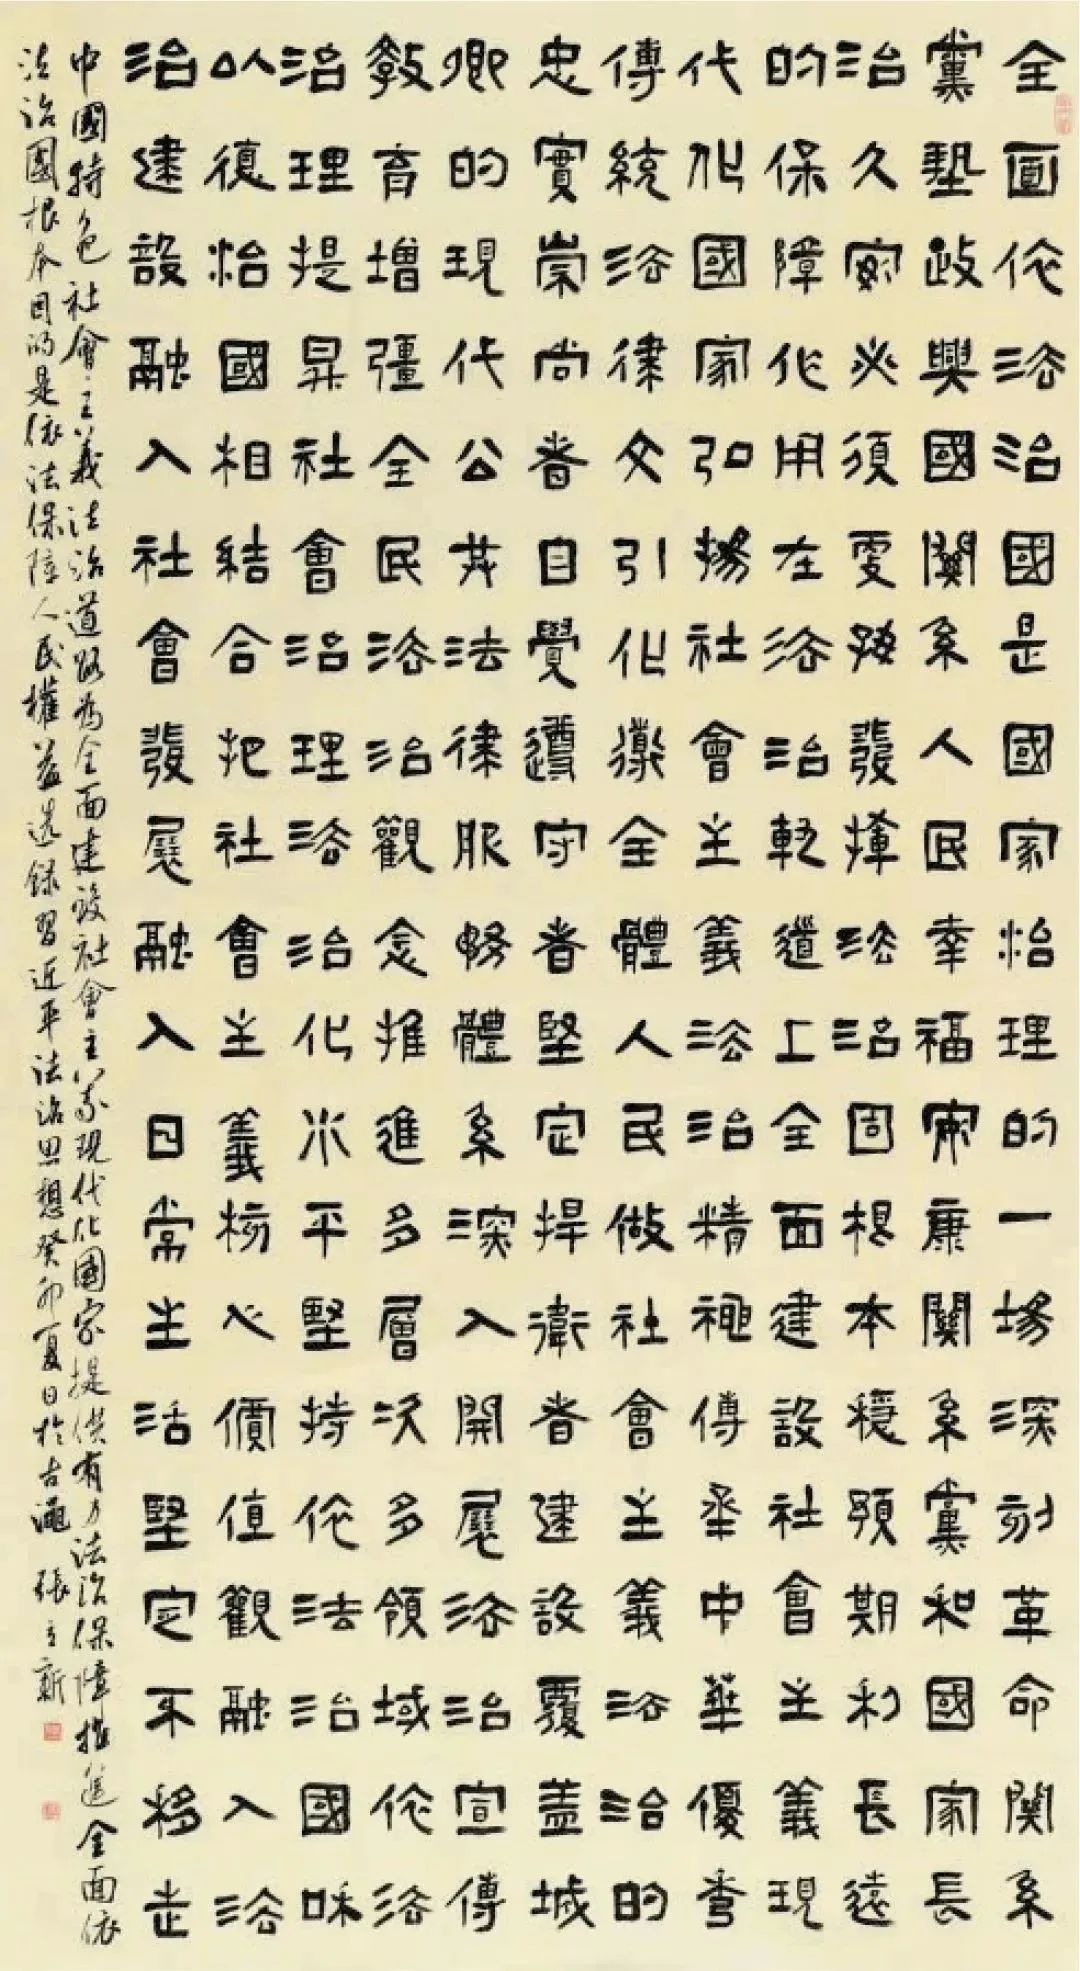 全面依法治國是國家治理的一場深刻革命關系
黨執政興國關系人民幸福安康關系黨和國家長
治久安必須更好發揮法治固根本穩預期利長遠
的保障作用在法治軌道上全面建設社會主義現
代化國家弘揚社會主義法治精神傳承中華優秀
傳統法律文化引導全體人民做社會主義法治的
忠實崇尚者自覺遵守者堅定捍衛者建設覆蓋城
鄉的現代公共法律服務體系深入開展法治宣傳
教育增強全民法治觀念推進多層次多領域依法
治理提昇社會治理法治化水平堅持依法治國和
以德治國相結合把社會主義核心價值觀融入法
治建設融入社會發展融入日常生活堅定不移走
中國特色社會主義法治道路為全面建設社會主義現代化國家提供有力法治保障推進全面依
法治國根本目的是依法保障人民權益選錄習近平法治思想癸卯夏日於古 張立新